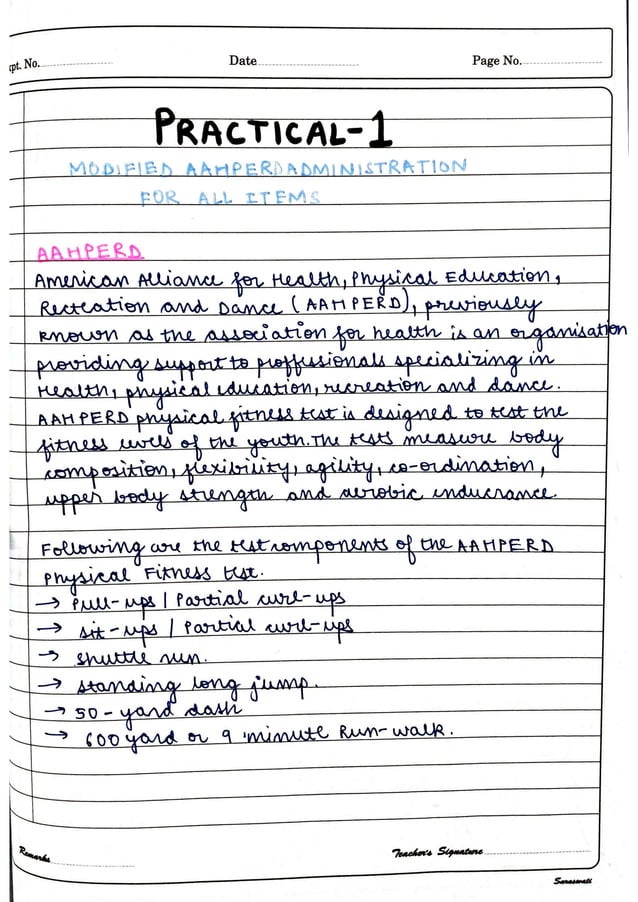 xpt. No.
Date
Page No.
PRACTICAL-1
MODIFIED AAHPERD ADMINISTRATION
FOR ALL ITEMS
AAHPERD
American Alliance for Health, Physical Education,
Recreation and Dance (AAHPERD), previously
known as the association for health is an organisation
providing support to proffussionals specializing in
Health, physical education, recreation and dance.
AAHPERD physical fitness test is designed to test the
fitness levels of the youth. The tests measure body
composition, flexibility, agility, co-ordination,
upper body strength and aerobic endurance.
Following are the test components of the AAHPERD
Physical Fitness test.
→ Pull-ups / Partial curl-ups
→ sit-ups / Partial curl-ups
→ shuttle run.
→ standing long jump.
→ 50-yard dash
→ 600 yard or 9 minute Run-walk.
Remarks
Teacher's Signature
Saraswati